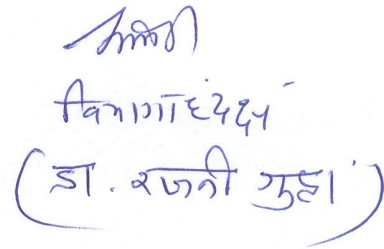 विभागाध्यक्ष
(डा. रजनी गुहा)